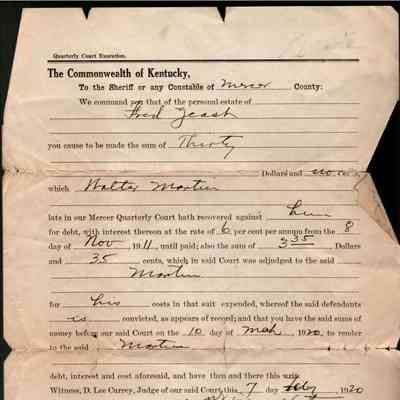 Quarterly Court Execution.
The Commonwealth of Kentucky,
To the Sheriff or any Constable of Mercer County:
We command you that of the personal estate of
Fred
you cause to be made the sum of Thirty
Dollars and no Cents,
which Walter Martin
late in our Mercer Quarterly Court hath recovered against him
for debt, with interest thereon at the rate of 6 per cent per annum from the 8
day of Nov 1911, until paid; also the sum of Dollars
and 35 cents, which in said Court was adjudged to the said
Martin
for his costs in that suit expended, whereof the said defendants
is convicted, as appears of record; and that you have the said sums of
money before our said Court on the 10 day of Mch 1920 to render
to the said Martin
debt, interest and cost aforesaid, and have then and there this writ.
Witness, D. Lee Currey, Judge of our said Court, this 7 day 1920